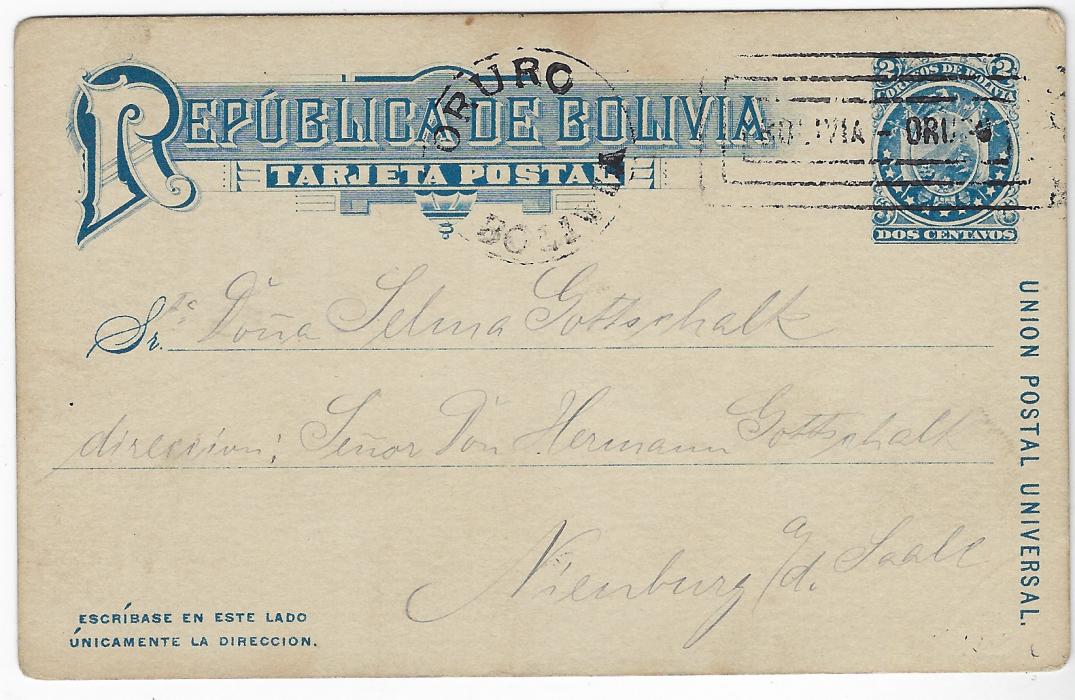 REPÚBLICA DE BOLIVIA
TARJETA POSTAL
ORURO
BOLIVIA
BOLIVIA - ORURO
2 2
CORREOS DE BOLIVIA
DOS CENTAVOS
Sr.ta Doña Selma Gottschalk
dirección: Señor Dn Hermann Gottschalk
Nienburg a/d. Saale
UNION POSTAL UNIVERSAL.
ESCRÍBASE EN ESTE LADO
ÚNICAMENTE LA DIRECCION.